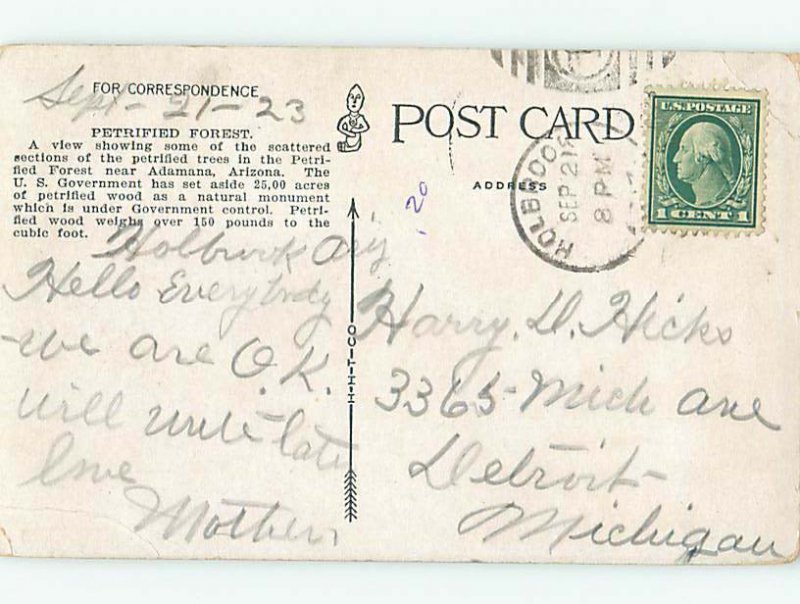 FOR CORRESPONDENCE
Sept - 21 - 23
PETRIFIED FOREST.
A view showing some of the scattered
sections of the petrified trees in the Petri-
fied Forest near Adamana, Arizona. The
U. S. Government has set aside 25,00 acres
of petrified wood as a natural monument
which is under Government control. Petri-
fied wood weighs over 150 pounds to the
cubic foot.
Holbrook Ariz
Hello Everybody
-we are O.K.
will write later
love
Mother
H-H-T-CO
POST CARD
ADDRESS
20
HOLBROOK
SEP 21
8 PM
U.S. POSTAGE
1 CENT 1
Harry. D. Hicks
3365 - Mich ave
Detroit -
Michigan